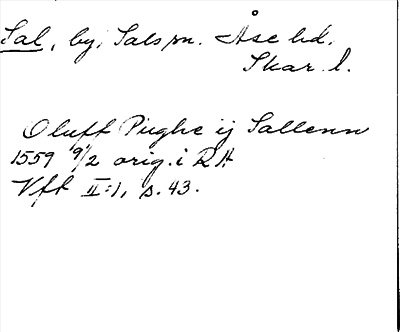 Sal, by, Sals sn. Åse hd.
Skar. l.
Oluff Pughe ij Sallenn
1559 9/2 orig. i RA
Vft II:1, s. 43.